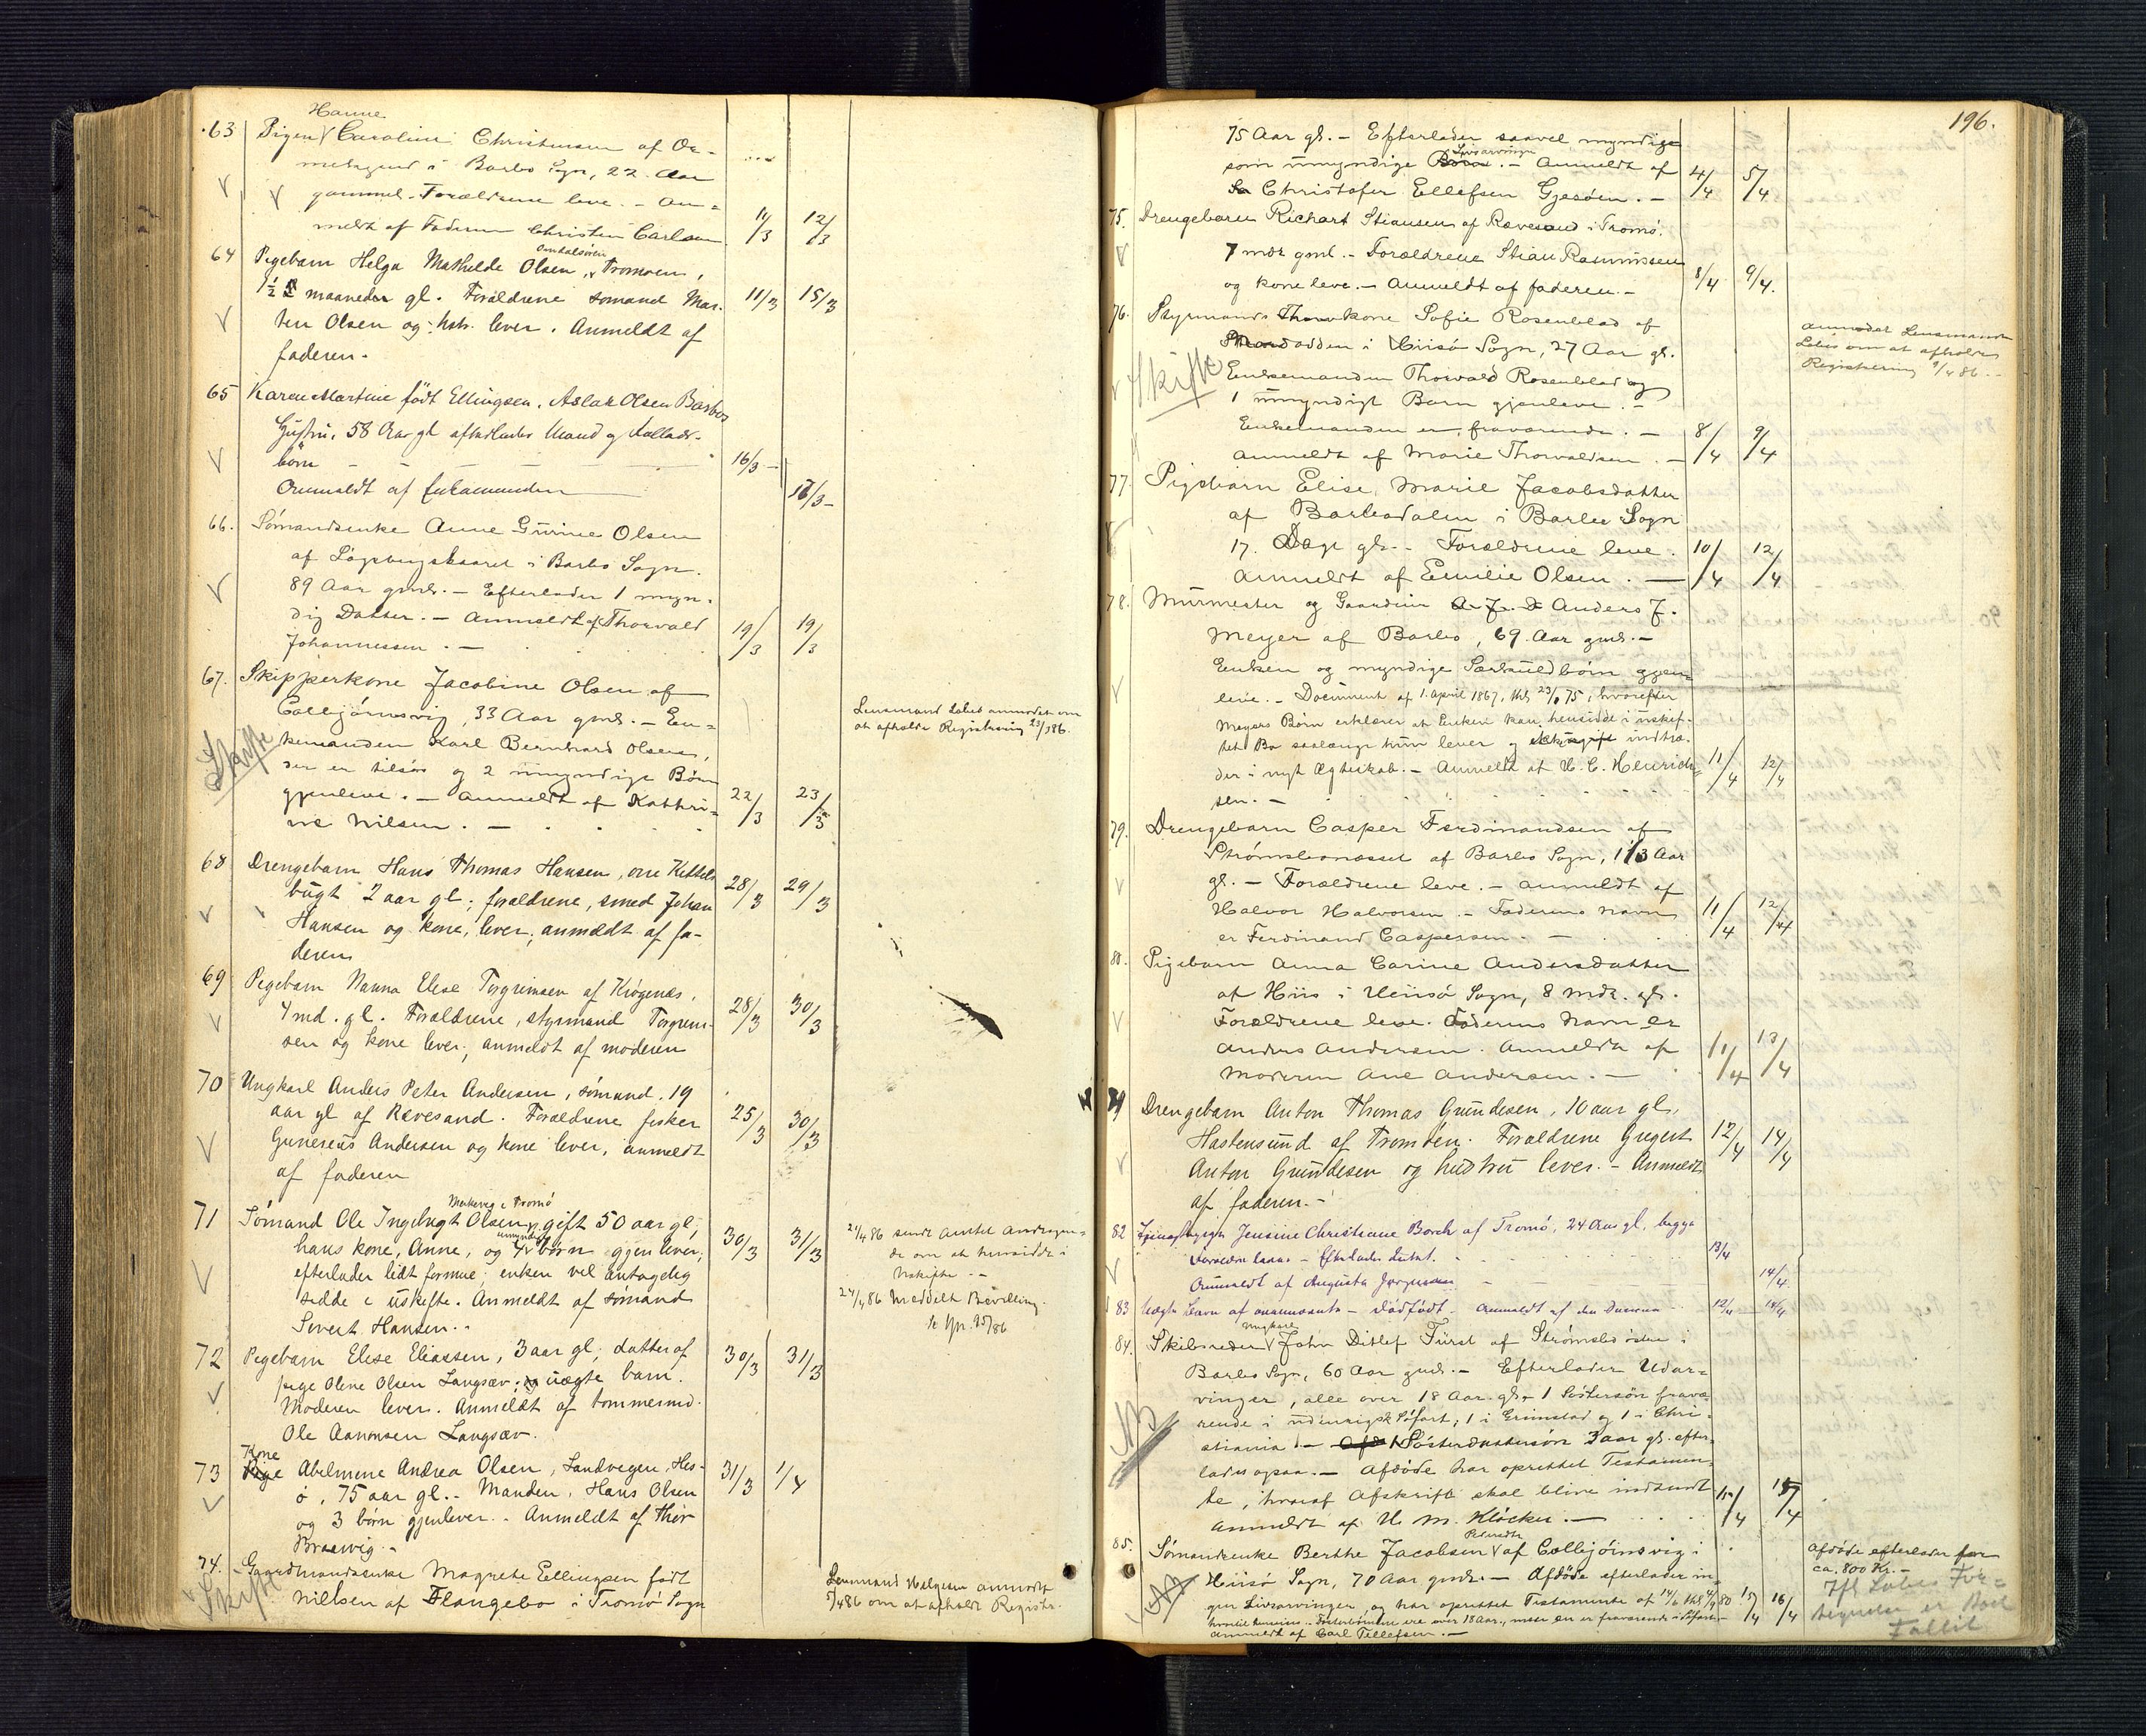 Hanne
63 Pigen Caroline Christensen af
i Barbo Sogn, 22 Aar
gammel. Forældrene leve. – An=
meldt af Faderen Christen Carlsen 11/3 12/3
64 Pigebarn Helga Mathilde Olsen, Tromøen,
1½ maaneder gl. Forældrene sømand Mar- 11/3 15/3
ten Olsen og hstr. lever. Anmeldt af
faderen.
65 Karen Martine födt Ellingsen, Aslak Olsen Barbos
Hustru, 58 Aar gl efterlader Mand og
börn 16/3
Anmeldt af Enkemanden 17/3
66. Sømandsenke Anne Gurine Olsen
af i Barbo Sogn.
89 Aar gml. – Efterlader 1 myn=
dig Datter. – Anmeldt af Thorvald 19/3 19/3
Johannessen. –
67. Skipperkone Jacobine Olsen af
Colbjörnsvig, 33 Aar gml. – En= Lensmand Lobis anmodet om
at afholde Registrering 23/3 86.
Skifte
kemanden Karl Bernhard Olsen,
der er tilsøs og 2 umyndige Børn
gjenleve. – Anmeldt af Kathri= 22/3 23/3
ne Nilsen. –
68 Drengebarn Hans Thomas Hansen, Kittels
bugt 2 aar gl; forældrene, smed Johan 28/3 29/3
Hansen og kone, lever; anmeldt af fa-
deren
69 Pigebarn Nanna Elise Torgrimsen af Krøgenes,
4 md. gl. Forældrene, styrmand Torgrim- 28/3 30/3
sen og kone lever; anmeldt af moderen
70 Ungkarl Anders Peter Andersen, sömand, 19
aar gl af Revesand. Forældrene fisker 25/3 30/3
Gunerius Andersen og kone lever, anmeldt
af faderen
Merkevig i Tromö
71 Sömand Ole Ingebregt Olsen, gift 50 aar gl;
hans kone, Anne, og börn gjenlever; 30/3 31/3 2/4 86 sendt Amtet Andragen=
de om at hensidde i
Uskifte –
efterlader lidt formue; enken vil antagelig
sidde i uskifte. Anmeldt af sömand 24/4 86 Meddelt Bevilling.
Sivert Hansen.
72 Pigebarn Elise Eliassen, 3 aar gl; datter af 30/3 31/3
pige Oline Olsen Langsæv; uægte barn.
Moderen lever. Anmeldt af tömmermd.
Ole Aanonsen Langsæv.
Kone
73 Abelmine Andrea Olsen, Landvigen, His-
ö, 75 aar gl. – Manden, Hans Olsen 31/3 1/4
og 3 börn gjenlever. – Anmeldt af Thor
Bræwig. –
74. Gaardmandsenke Magrete Ellingsen født Lensmand Helgesen anmodet
5/4 86 om at afholde Registr.
Skifte
Nilsen af Flangebo i Tromø Sogn
196.
75 Aar gl. – Efterlader saavel myndige
som umyndige Livsarvinger. – Anmeldt af
Christofer Ellefsen Gjesøen. – 4/4 5/4
75. Drengebarn Richart Stiansen af Rævesand i Tromö.
7 mdr gml. – Forældrene Stian Rasmussen
og kone leve. – Anmeldt af faderen. – 8/4 9/4.
76. Styrmands kone Sofie Rosenblad af
odden i Hiisø Sogn, 27 Aar gl. Anmodet Lensmand
Lobis om at afholde
Registrering 9/4 86. –
Skifte
Enkemanden Thorvald Rosenblad og
1 umyndigt Barn gjenleve. –
Enkemanden er fraværende. – 8/4 9/4
Anmeldt af Marie Thorvaldsen. –
77. Pigebarn Elise Marie Jacobsdatter
af Barbodalen i Barbo Sogn
17. Dage gl. – Forældrene leve. 10/4 12/4
Anmeldt af Emilie Olsen. –
78. Murmester og Gaardeier Anders J.
Meyer af Barbo, 69 Aar gml. –
Enken og myndige Særkuldbörn gjen=
leve. – Document af 1. April 1867, , hvorefter
Meyers Börn erklærer at Enken kan hensidde i uskif=
tet Bo saalænge hun lever og indtræ=
der i nyt Ægteskab. – Anmeldt af H. C. Henrich= 11/4 12/4
sen. –
79. Drengebarn Casper Ferdinandsen af
Strømsbonæsset af Barbo Sogn, 1 1/3 Aar
gl. – Forældrene leve. – Anmeldt af
Halvor Halvorsen. – Faderens Navn 11/4 12/4
er Ferdinand Caspersen. –
80. Pigebarn Anna Carine Andersdatter
af Hiis i Hiisø Sogn, 8 mdr. gl.
Forældrene leve. Faderens Navn er
Anders Andersen. Anmeldt af 11/4 13/4
Moderen Ane Andersen. –
81 Drengebarn Anton Thomas Gundesen, 10 aar gl,
Hastensund af Tromöen. Forældrene Gregert 12/4 14/4
Anton Gundesen og hustru lever. – Anmeldt
af faderen. –
82 Jensine Christiane Borch af Tromö, 24 Aar gl, begge
Forældre – Efterlader intet. 13/4
Anmeldt af Augusta Jørgensen 14/4.
83 Uægte Barn af – dödfödt. Anmeldt af 12/4 14/4
Ungkarl
84. Skibsreder John Ditlef Fürst af Strømsbo østre i
Barbo Sogn, 60 Aar gml. – Efterlader Udar=
vinger, alle over 18 Aar gl, 1 Söstersön fravæ=
rende i udenrigsk Söfart, 1 i Grimstad og 1 i Chri=
stiania. – Sösterdattersön 3 aar gl. efter=
lades ogsaa. – Afdöde har oprettet Testamen=
te, hvoraf Afskrift skal blive indsendt
Anmeldt af H. M. Klöcker. – 15/4 15/4
85. Sömandsenke Berthe Jacobsen af Colbjörnsvig i Afdöde efterlader for
ca. 800 Kr. –
Hiisö Sogn, 70 Aar gml. – Afdöde efterlader in=
gen Livsarvinger og har oprettet Testamente af 15/4 16/4
ere over 18 Aar, men en er fraværende i Söfart.
Anmeldt af Carl Tellefsen. –
Ifl Lobis For=
tegnelse er Boet
Fallit